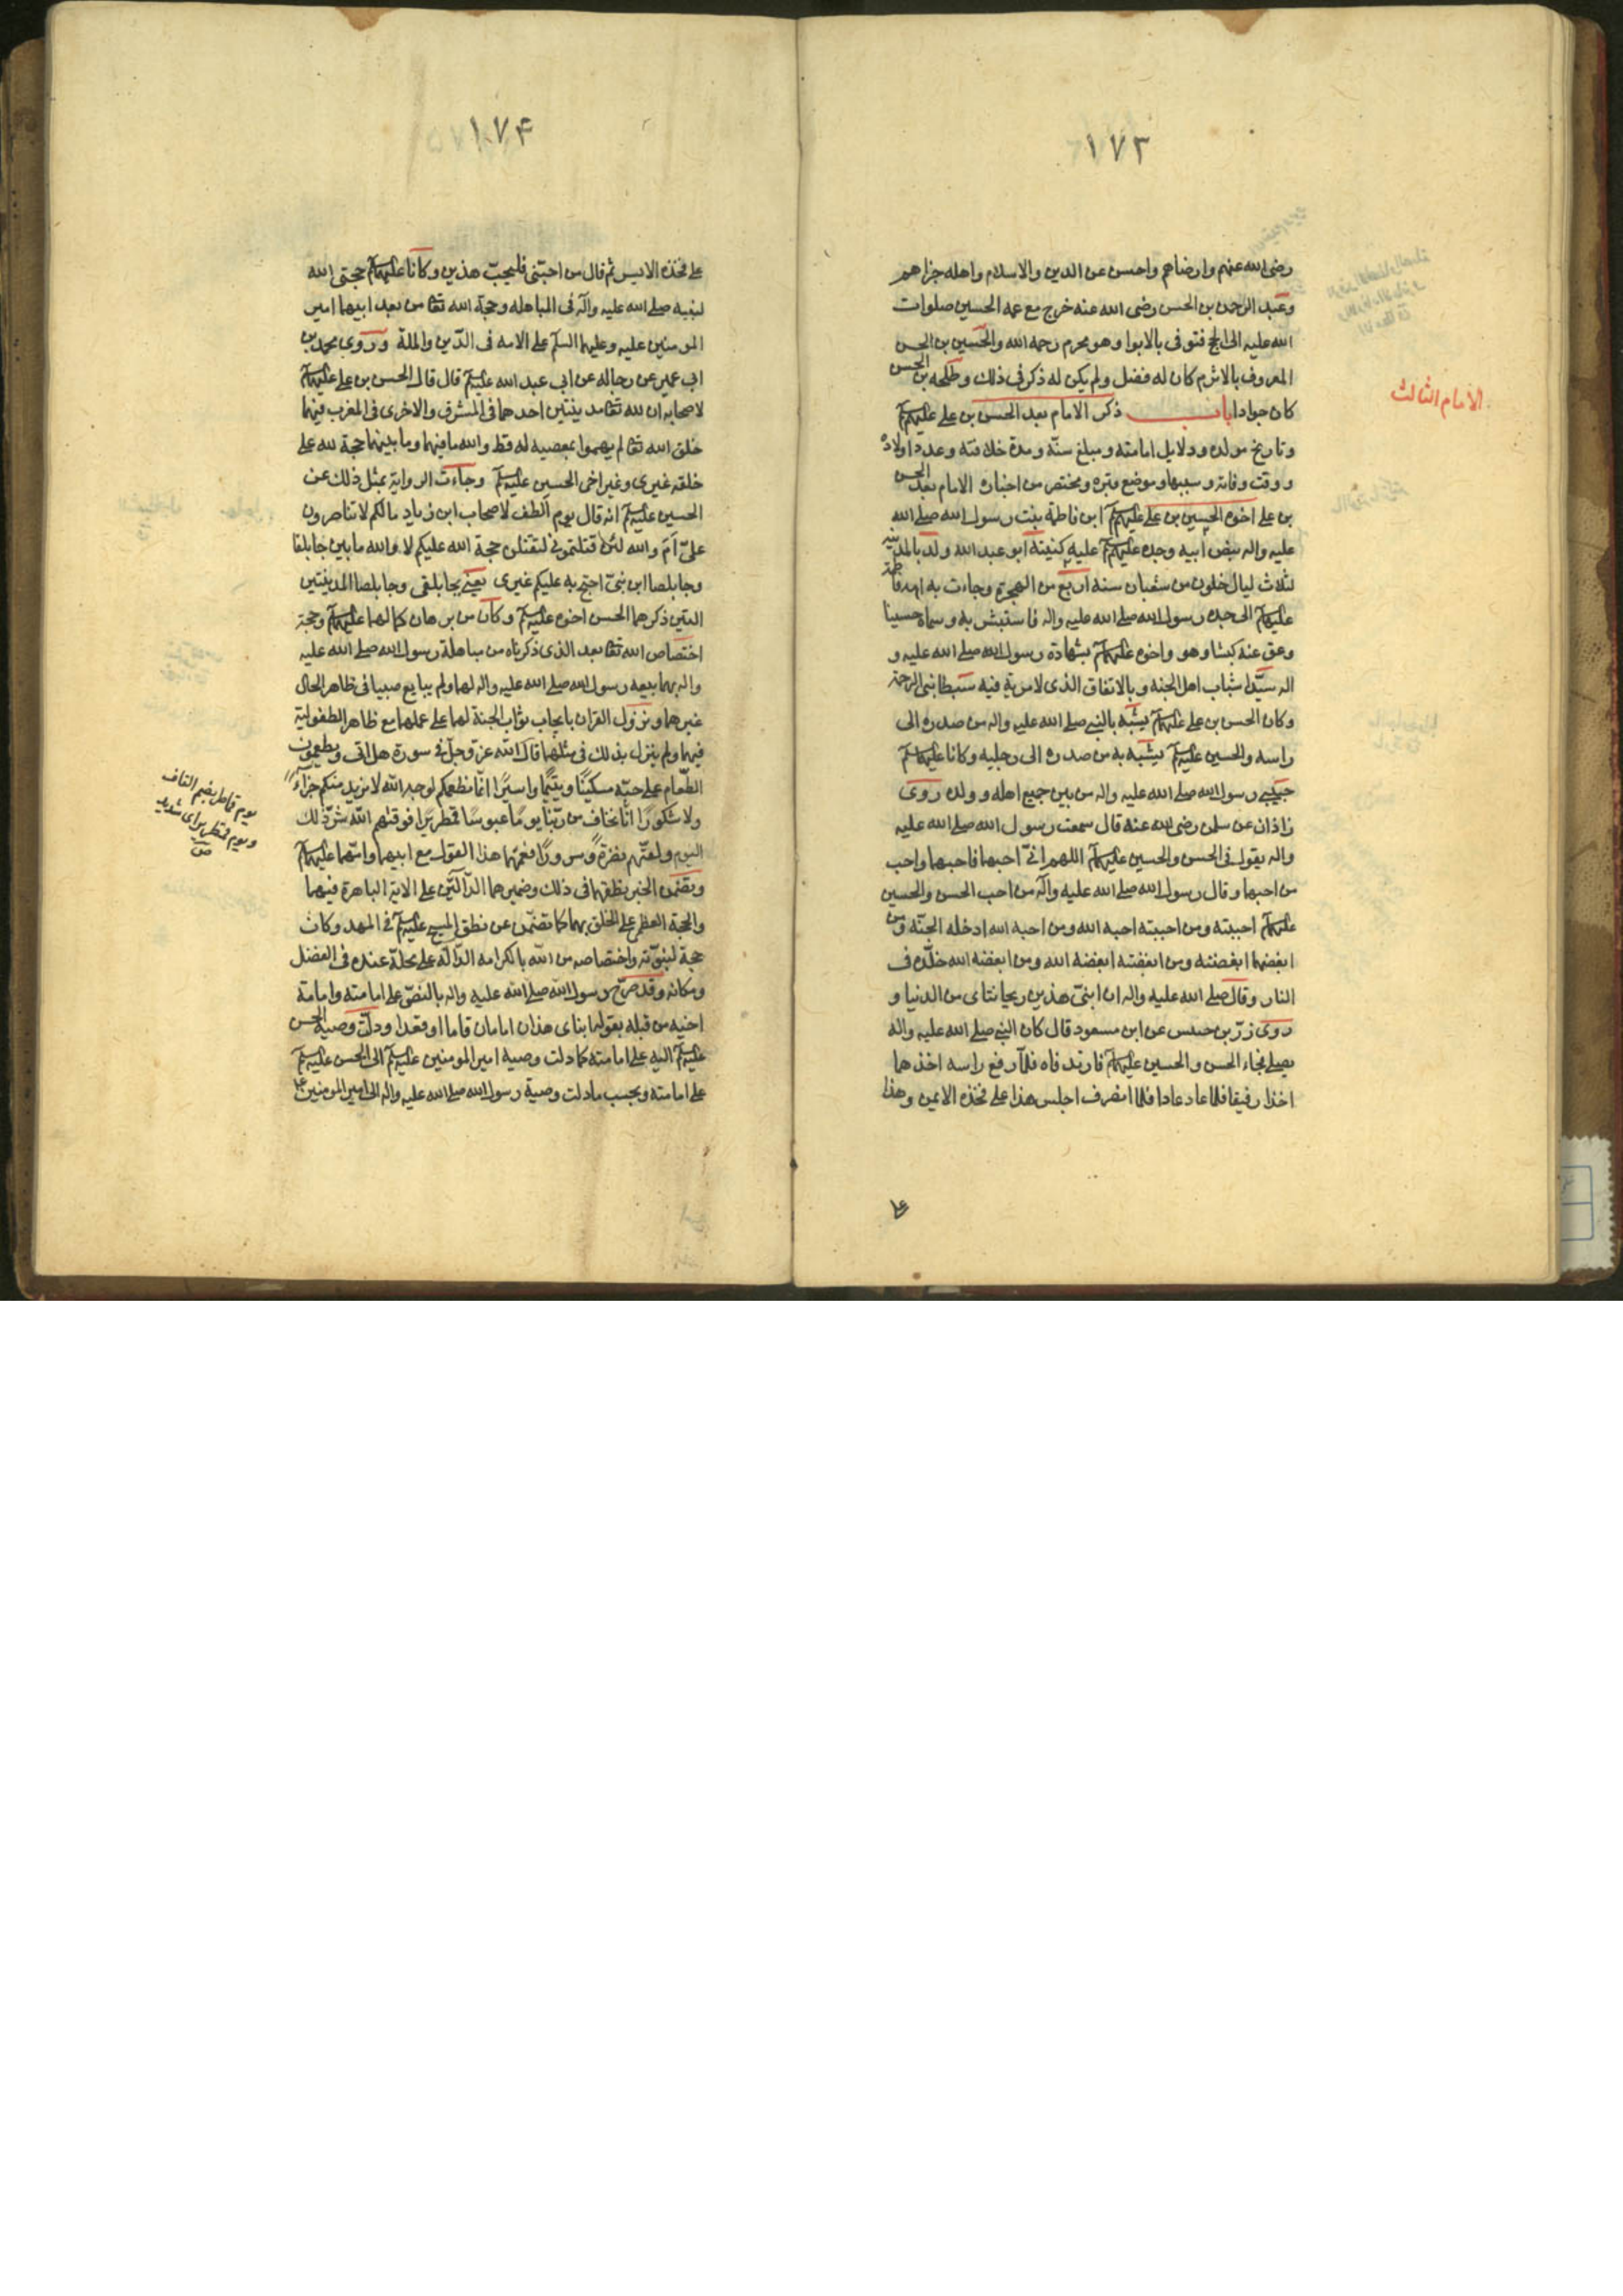 ١٧٣
رضی الله عنهم وارضاهم واحسن عن الدین والاسلام واهله جزاهم
وعبد الرحمن بن الحسن رضی الله عنه خرج مع عمه الحسین صلوات
الله علیه الی الحج فتوفی بالابوا وهو محرم رحمه الله والحسین بن الحسن
المعروف بالاثرم کان له فضل ولم یکن له ذکر فی ذلک وطلحه بن الحسن
کان جوادا باب ذکر الامام بعد الحسن بن علی علیهم
الامام الثالث
وتاریخ مولده ودلایل امامته ومبلغ سنّه ومدة خلافته وعدد اولاده
ووقت وفاته وسببها وموضع قبره ومختصر من اخباره الامام بعد الحسن
بن علی اخوه الحسین بن علی علیهم ابن فاطمة بنت رسول الله صلی الله
علیه واله بنص ابیه وجده علیهم علیه کنیته ابو عبد الله ولد بالمدینه
لثلاث لیال خلون من شعبان سنه اربع من الهجرة وجاءت به امه فاطمة
علیهم الی جده رسول الله صلی الله علیه واله فاستبشر به وسماه حسینا
وعق عنه کبشا وهو واخوه علیهم بشهادة رسول الله صلی الله علیه و
اله سیّدا شباب اهل الجنه وبالاتفاق الذی لا مریة فیه سبطا نبی الرحمة
وکان الحسن بن علی علیهم یشبه بالنبی صلی الله علیه واله من صدره الی
راسه والحسین علیه یشبه به من صدره الی رجلیه وکانا علیهم
حبیبی رسول الله صلی الله علیه واله من بین جمیع اهله وولده روی
زاذان عن سلمن رضی الله عنه قال سمعت رسول الله صلی الله علیه
واله یقول فی الحسن والحسین علیهم اللهم انّی احبهما فاحبهما واحب
من احبهما وقال رسول الله صلی الله علیه واله من احب الحسن والحسین
علیهم احببته ومن احببته احبه الله ومن احبه الله ادخله الجنّة ومن
ابغضهما ابغضته ومن ابغضته ابغضه الله ومن ابغضه الله خلّده فی
النار وقال صلی الله علیه واله ان ابنیّ هذین ریحانتای من الدنیا و
روی زرّ بن حبیس عن ابن مسعود قال کان النبی صلی الله علیه واله
یصلی فجاء الحسن والحسین علیهم فارتدفاه فلمّا رفع راسه اخذهما
اخذا رفیقا فلما عاد عادا فلما انصرف اجلس هذا علی فخذه الایمن وهذا
علی
١٧۴
علی فخذه الایسر ثم قال من احبّنی فلیحبّ هذین وکانا علیهم حجتی الله
لنبیه صلی الله علیه واله فی المباهله وحجة الله تعا من بعد ابیهما امیر
المومنین علیه وعلیهما السلم علی الامه فی الدّین والملة وروی محمد بن
ابی عمیر عن رجاله عن ابی عبد الله علیه قال قال الحسن بن علی علیهم
لاصحابه ان لله تعا مدینتین احدهما فی المشرق والاخری فی المغرب فیهما
خلق الله تعا لم یهموا بمعصیه له قط والله ما فیهما وما بینهما حجة لله علی
خلقه غیری وغیر اخی الحسین علیه وجاءت الروایة بمثل ذلک عن
الحسین علیه انه قال یوم الطف لاصحاب ابن زیاد مالکم لا تناصرون
علیّ اَمَ والله لئن قتلتمونی لتقتلون حجة الله علیکم لا والله ما بین جابلقا
وجابلصا ابن نبیّ احتج به علیکم غیری یعنی بجابلقی وجابلصا المدینتین
التین ذکرهما الحسن اخوه علیه وکان من برهان کمالهما علیهم وحجة
اختصاص الله تعا بعد الذی ذکرناه من مباهلة رسول الله صلی الله علیه
واله بهما بیعه رسول الله صلی الله علیه واله لهما ولم یبایع صبیا فی ظاهر الحال
غیرهما ونزول القران بایجاب ثواب الجنة لهما علی عملهما مع ظاهر الطفولیة
فیهما ولم ینزل بذلک فی مثلهما قال الله عزّ وجلّ فی سورة هل اتی ویطعمون
الطّعام علی حبّه مسکینًا ویتیمًا واسیرًا انّما نطعمکم لوجه الله لا نرید منکم جزاءً
ولا شکورًا انّا نخاف من ربّنا یومًا عبوسًا قمطریرًا فوقیٰهم الله شرّ ذلک
الیوم ولقّیٰهم نضرة وّسرورًا فعمّهما هذا القول مع ابیهما وامّهما علیهم
وتضمّن الخبر نطقهما فی ذلک وضمیرهما الدّالّین علی الایة الباهرة فیهما
والحجة العظمی علی الخلق بهما کما تضمّن عن نطق المسیح علیه فی المهد وکان
حجة لنبوّته واختصاصه من الله بالکرامه الدّالّة علی محلّه عنده فی الفضل
ومکانه وقد صرّح رسول الله صلی الله علیه واله بالنصّ علی امامته وامامة
اخیه من قبله بقوله ابنای هذان امامان قاما او قعدا ودلّت وصیة الحسن
علیه الیه علی امامته کما دلت وصیه امیر المومنین علیه الی الحسن علیه
علی امامته وبحسب ما دلت وصیة رسول الله صلی الله علیه واله الی امیر المومنین
یوم قماطر بضم القاف
ویوم قمطریر ای شدید
ص